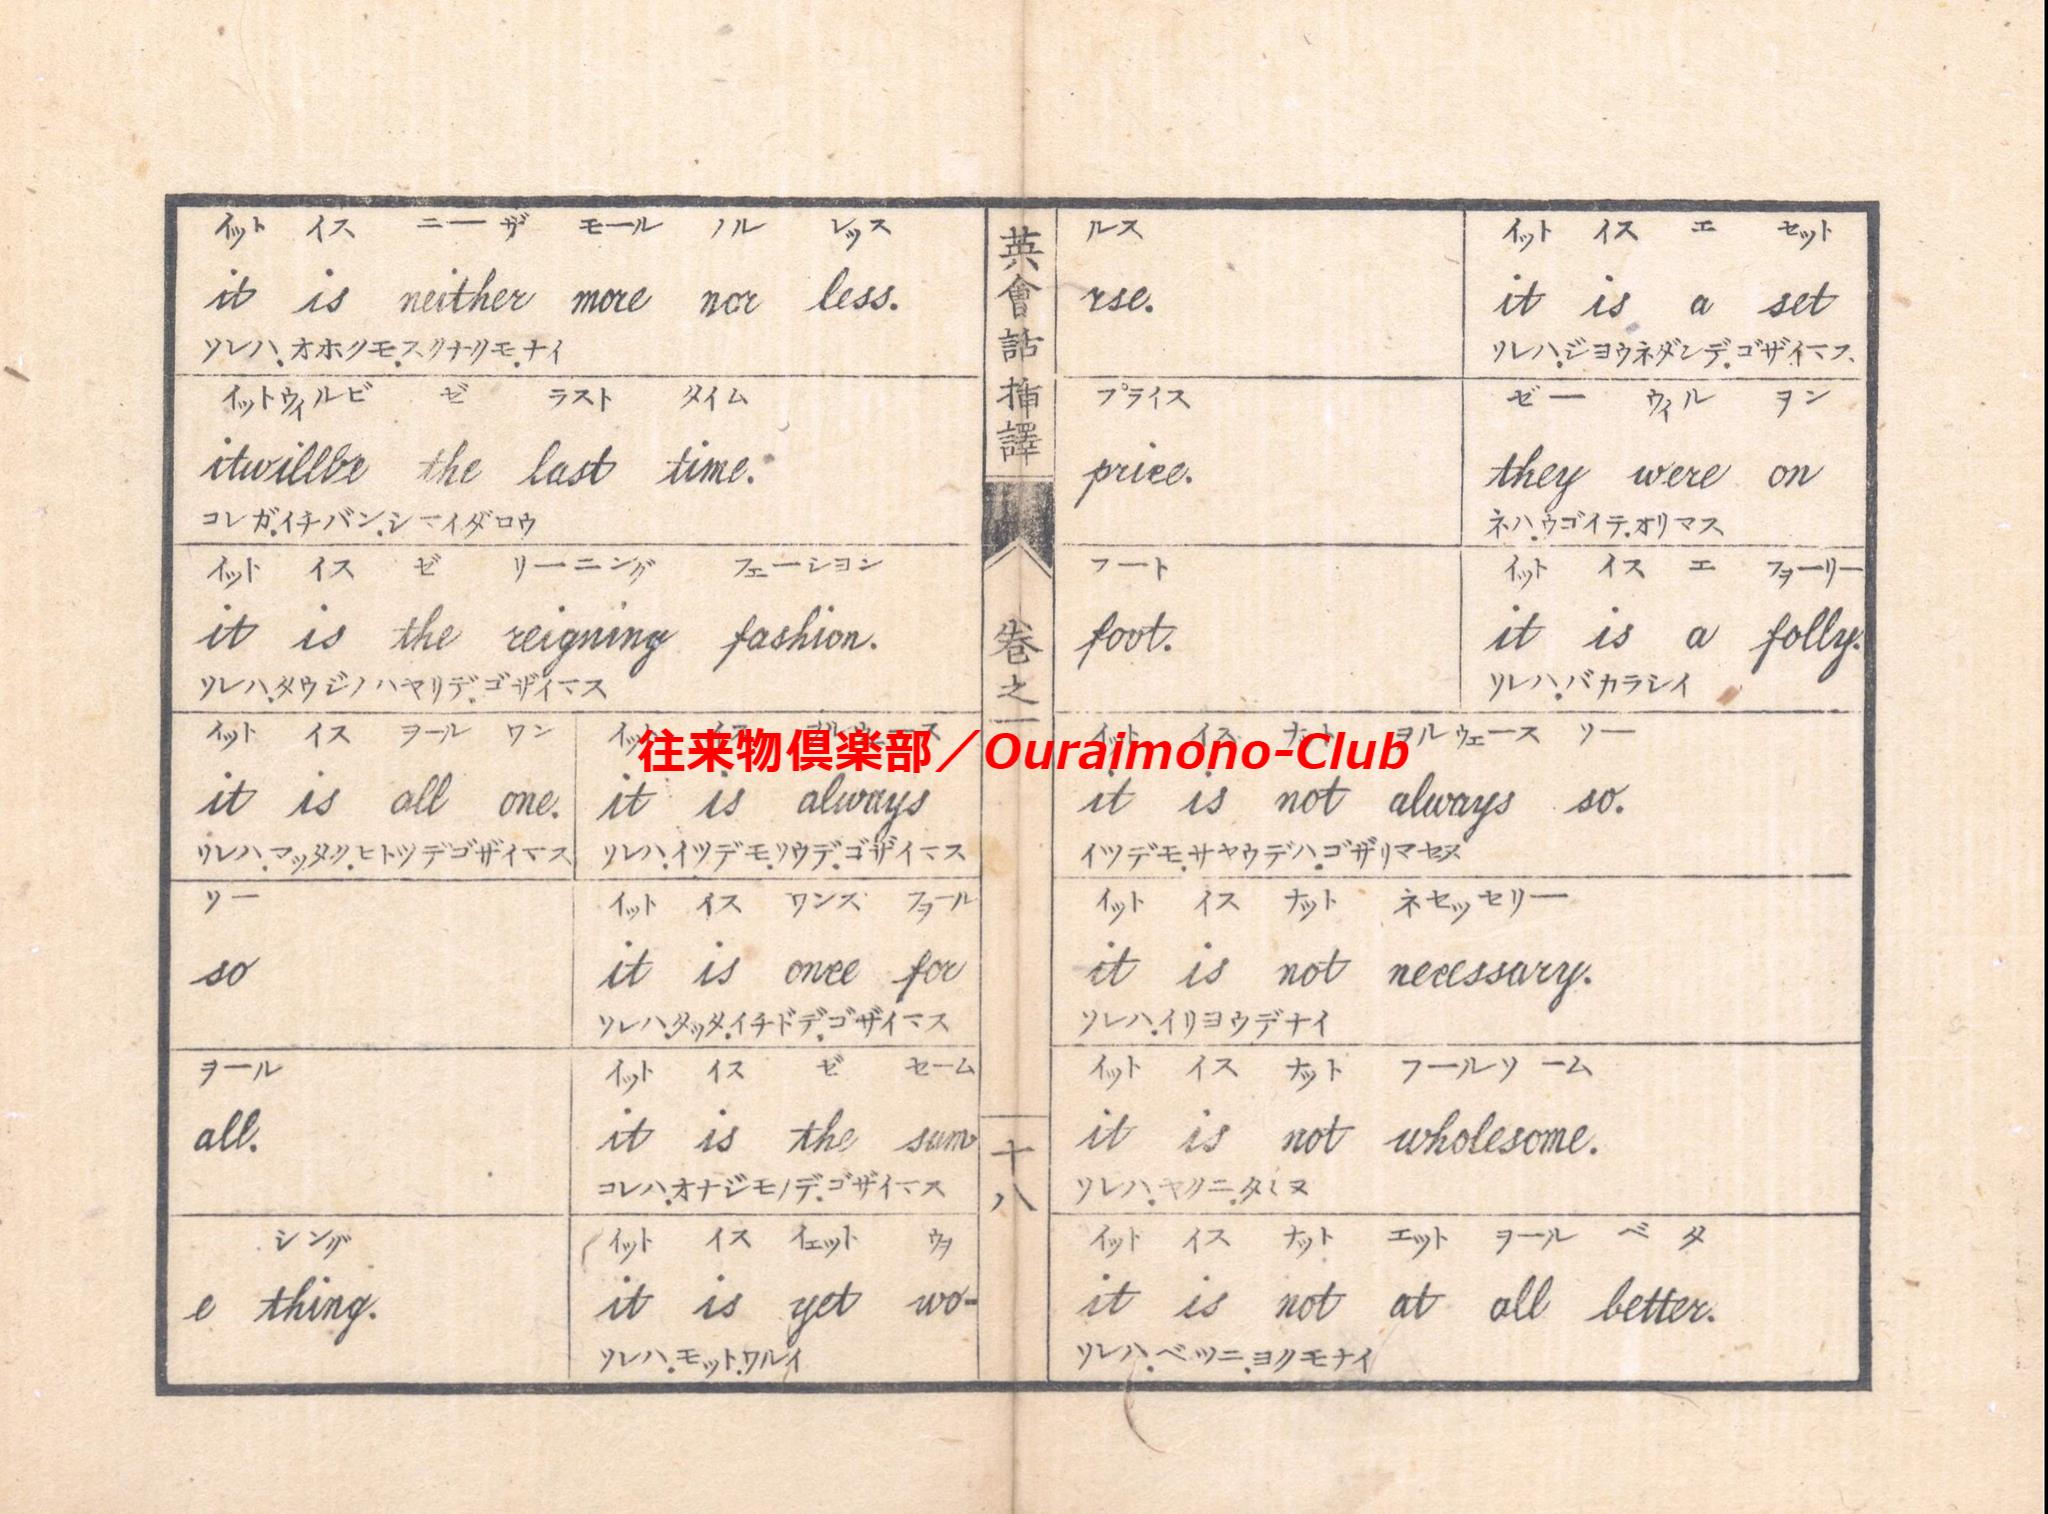 イット イス ニーザ モール ノル レッス
it is neither more nor less.
ソレハ.オホクモ.スクナクモ.ナイ
イットウィルビ ゼ ラスト タイム
itwillbe the last time.
コレガ.イチバン.シマイダロウ
イット イス ゼ リーニング フェーション
it is the reigning fashion.
ソレハ.タウジノハヤリデ.ゴザイマス
イット イス ヲール ワン
it is all one.
ソレハ.マッタク.ヒトツデゴザイマス
イット イス
it is always
ソレハ.イツデモ.ソウデ.ゴザイマス
ソー
so
イット イス ワンス フヲール
it is once for
ソレハ.タッタ.イチドデ.ゴザイマス
ヲール
all.
イット イス ゼ セーム
it is the sam
コレハ.オナジモノデ.ゴザイマス
シング
e thing.
イット イス イェット ウヲ
it is yet wo-
ソレハ.モット.ワルイ
英會話挿譯
卷之一
十八
ルス
rse.
イット イス エ セット
it is a set
ソレハ.ジヨウネダンデ.ゴザイマス
プライス
price.
ゼー ウィル ヲン
they were on
ネハ.ウゴイテ.オリマス
フート
foot.
イット イス エ フヲーリー
it is a folly.
ソレハ.バカラシイ
イット イス ナット ヲルウェース ソー
it is not always so.
イツデモ.サヤウデハ.ゴザリマセヌ
イット イス ナット ネセッセリー
it is not necessary.
ソレハ.イリヨウデナイ
イット イス ナット フールソーム
it is not wholesome.
ソレハ.ヤクニ.タヽヌ
イット イス ナット エット ヲール ベタ
it is not at all better.
ソレハ.ベツニ.ヨクモナイ
往来物倶楽部／Ouraimono-Club